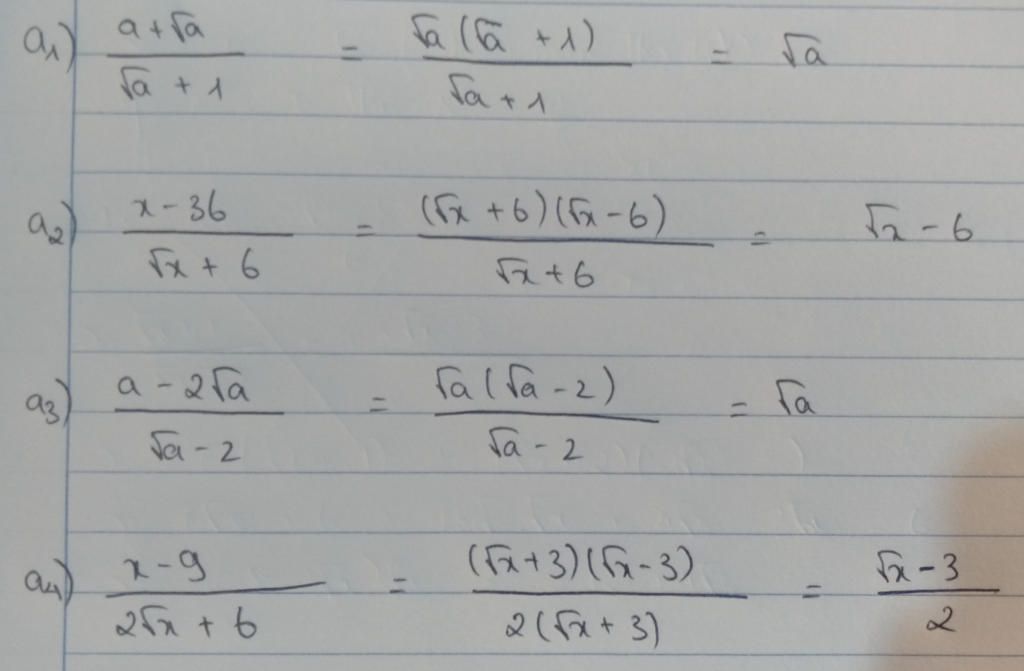 a₁) (a + √a)/(√a + 1) = (√a (√a + 1))/(√a + 1) = √a
a₂) (x - 36)/(√x + 6) = ((√x + 6)(√x - 6))/(√x + 6) = √x - 6
a₃) (a - 2√a)/(√a - 2) = (√a (√a - 2))/(√a - 2) = √a
a₄) (x - 9)/(2√x + 6) = ((√x + 3)(√x - 3))/(2(√x + 3)) = (√x - 3)/2